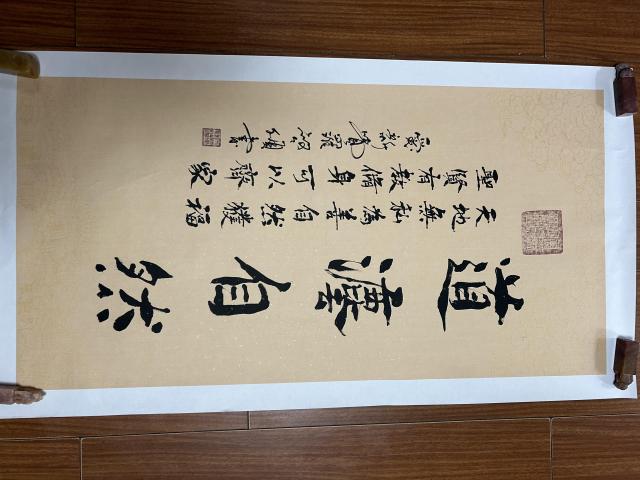 道灋自然
天地無私為善自然獲福
聖賢有教脩身可以齊家
書